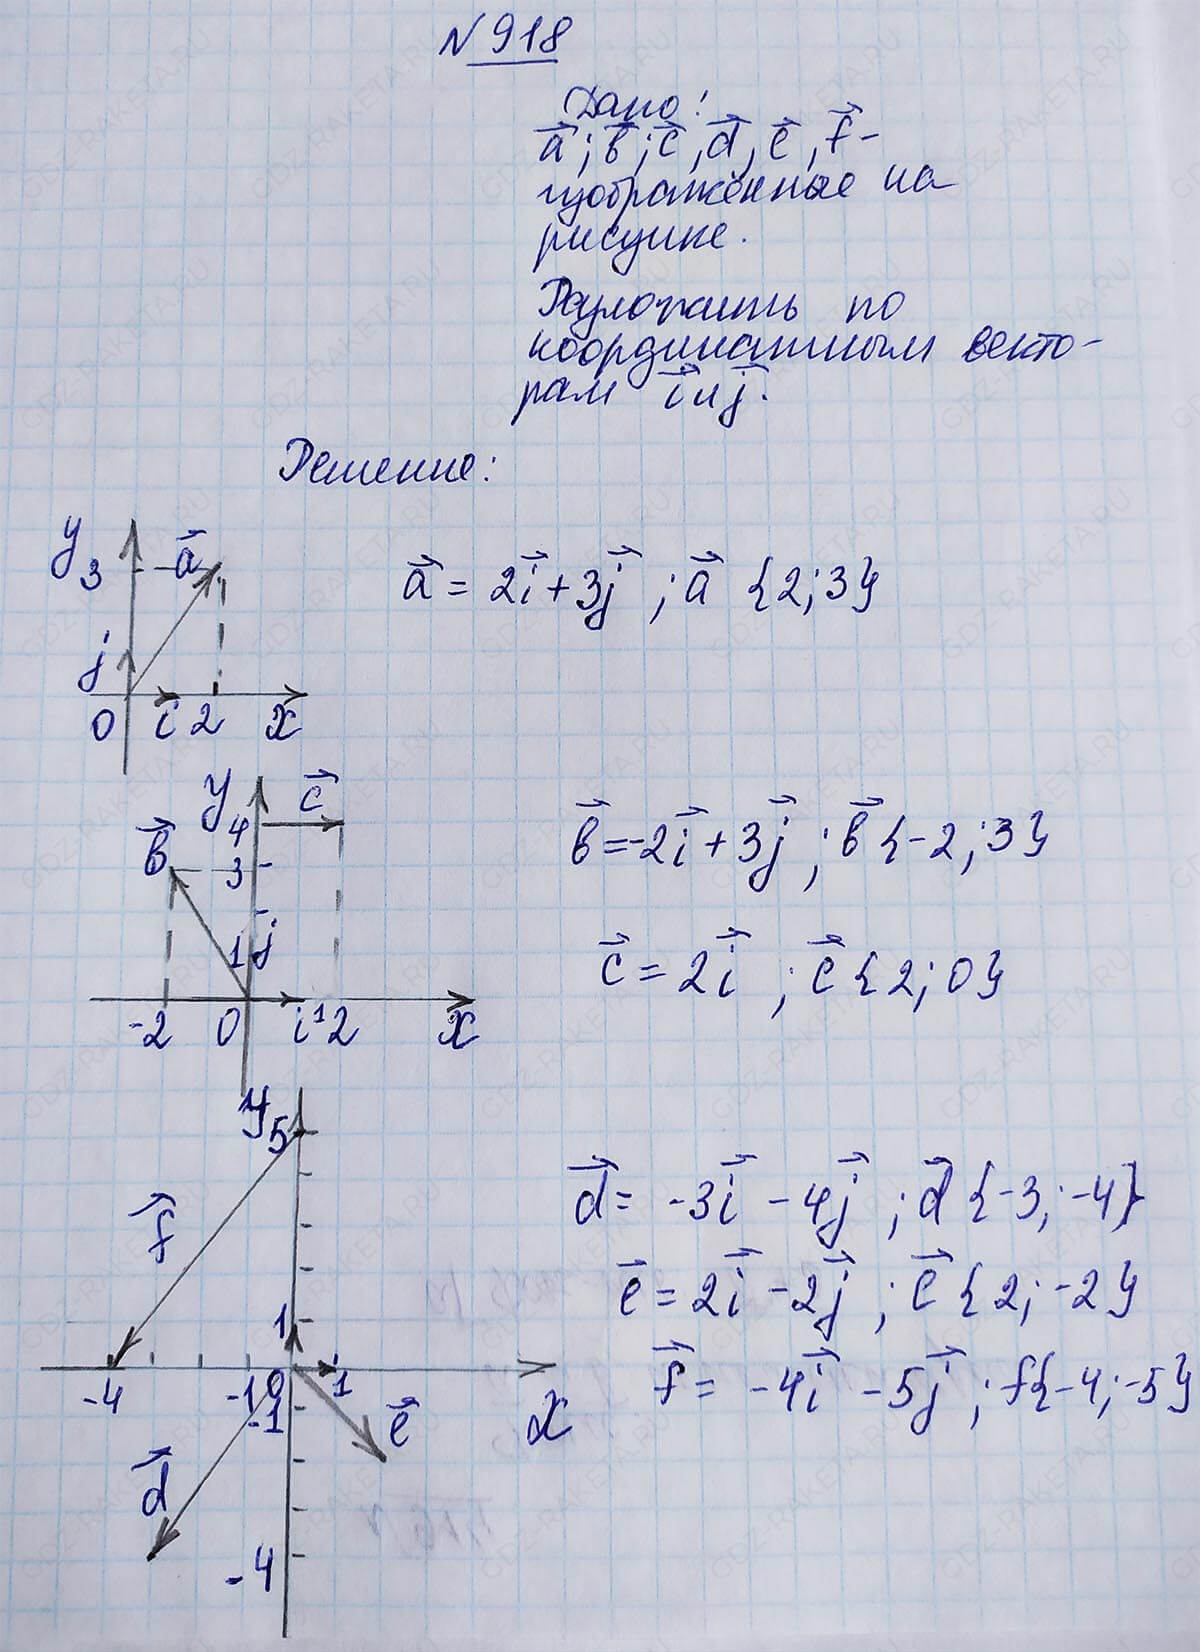 N 918
Дано!
a⃗; в⃗; c⃗, d⃗, e⃗, f⃗ -
изображённые на
рисунке.
Разложить по
координатным векто-
рам i⃗ и j⃗.
Решение:
y 3 a⃗
j
0 i 2 x
a⃗ = 2i⃗ + 3j⃗ ; a⃗ {2; 3}
y 4 c⃗
в⃗ 3
1 j
-2 0 i 1 2 x
в⃗ = -2i⃗ + 3j⃗ ; в⃗ {-2; 3}
c⃗ = 2i⃗ ; c⃗ {2; 0}
y 5
f⃗
1
-4 -1 0 1 x
-1 e⃗
d⃗
-4
d⃗ = -3i⃗ - 4j⃗ ; d⃗ {-3; -4}
e⃗ = 2i⃗ - 2j⃗ ; e⃗ {2; -2}
f⃗ = -4i⃗ - 5j⃗ ; f {-4; -5}
GDZ-RAKETA.RU